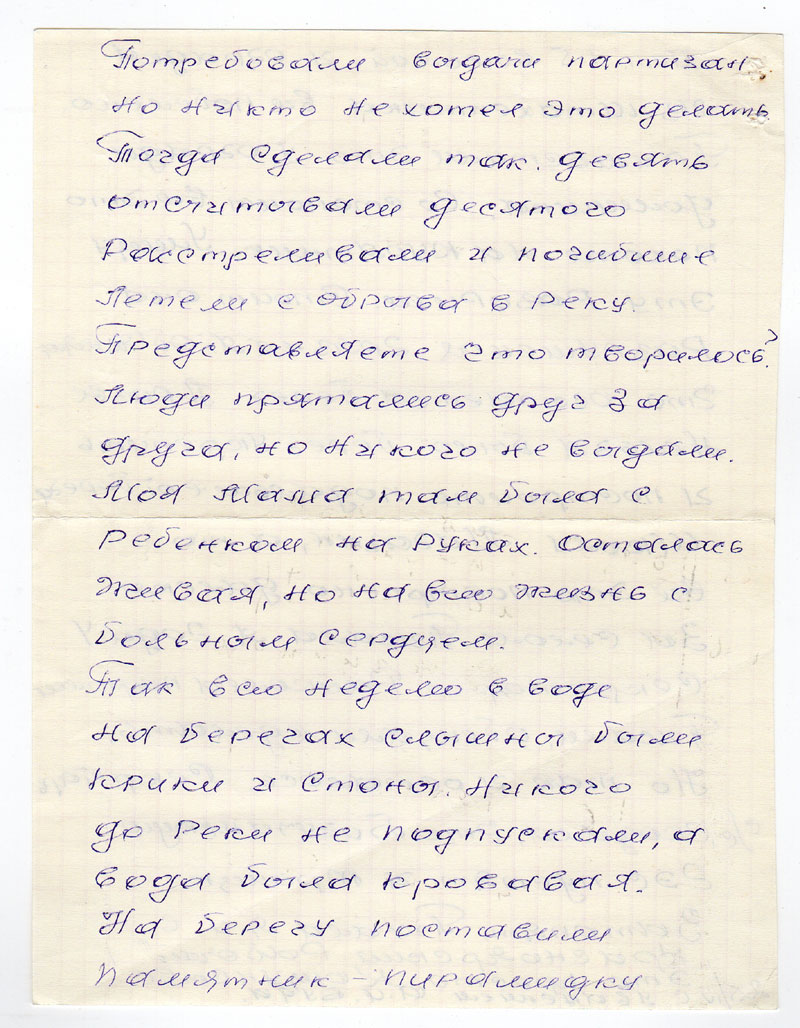 Потребовали выдачи партизан
но никто не хотел это делать.
Тогда сделали так. девять
отсчитывали десятого
Расстреливали и погибшие
Летели с обрыва в Реку.
Представляете что творилось?
Люди прятались друг за
друга, но никого не выдали.
Моя Мама там была с
Ребенком на Руках. Осталась
живая, но на всю жизнь с
больным Сердцем.
Так всю неделю в воде
на берегах слышны были
крики и Стоны. Никого
до Реки не подпускали, а
вода была кровавая.
На берегу поставили
памятник – пирамидку